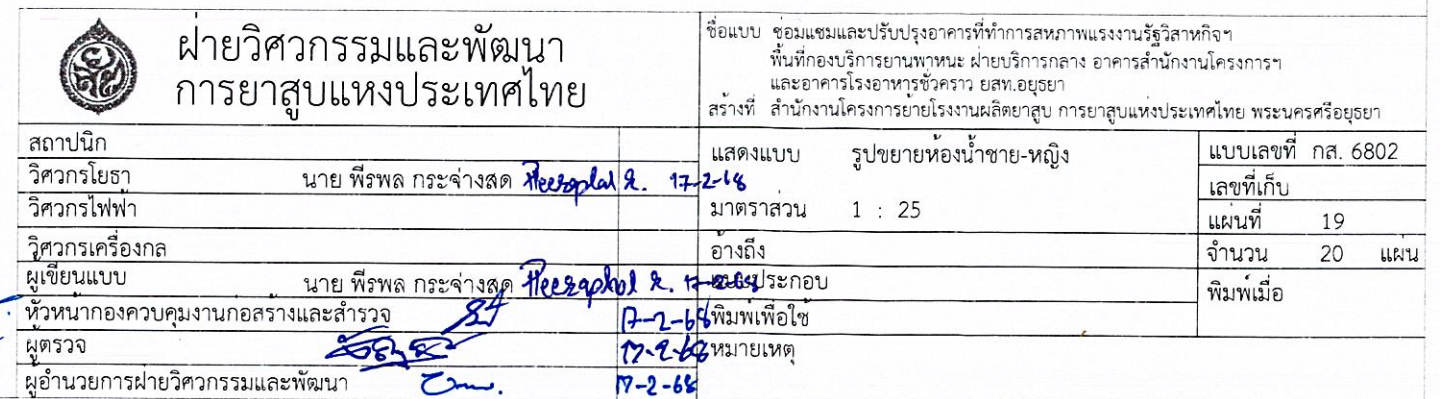 ฝ่ายวิศวกรรมและพัฒนา
การยาสูบแห่งประเทศไทย
ชื่อแบบ ซ่อมแซมและปรับปรุงอาคารที่ทำการสหภาพแรงงานรัฐวิสาหกิจฯ
พื้นที่กองบริการยานพาหนะ ฝ่ายบริการกลาง อาคารสำนักงานโครงการฯ
และอาคารโรงอาหารชั่วคราว ยสท.อยุธยา
สร้างที่ สำนักงานโครงการย้ายโรงงานผลิตยาสูบ การยาสูบแห่งประเทศไทย พระนครศรีอยุธยา
สถาปนิก
วิศวกรโยธา นาย พีรพล กระจ่างสด Peeraphol K. 17-2-68
วิศวกรไฟฟ้า
วิศวกรเครื่องกล
ผู้เขียนแบบ นาย พีรพล กระจ่างสด Peeraphol K. 17-2-68
หัวหน้ากองควบคุมงานก่อสร้างและสำรวจ 17-2-68
ผู้ตรวจ 17-2-68
ผู้อำนวยการฝ่ายวิศวกรรมและพัฒนา 17-2-68
แสดงแบบ รูปขยายห้องน้ำชาย-หญิง
มาตราส่วน 1 : 25
อ้างถึง
แบบประกอบ
พิมพ์เพื่อใช้
หมายเหตุ
แบบเลขที่ กส. 6802
เลขที่เก็บ
แผ่นที่ 19
จำนวน 20 แผ่น
พิมพ์เมื่อ